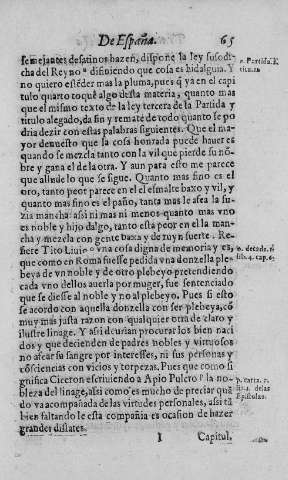 De España. 65
semejantes desatinos hazen, dispone la ley susodi-
cha del Reyno ⁿ difiniendo que cosa es hidalguia. Y
no quiero estēder mas la pluma, pues q̄ ya en el capi
tulo quarto toquè algo desta materia, quanto mas
que el mismo texto de la ley tercera de la Partida y
titulo alegado, da fin y remate de todo quanto se po
dria dezir con estas palabras siguientes. Que el ma-
yor denuesto que la cosa honrada puede hauer es
quando se mezcla tanto con la vil que pierde su nō-
bre y gana el de la otra. Y aun para esto me parece
que allude lo que se sigue. Quanto mas fino es el
oro, tanto peor parece en el el esmalte baxo y vil, y
quanto mas fino es el paño, tanta mas le afea la su-
zia mancha: assi ni mas ni menos quanto mas vno
es noble y hijo dalgo, tanto esta peor en el la man-
cha y mezcla con gente baxa y de ruyn suerte. Refie-
re Tito Liuio ᵒ vna cosa digna de memoria y es,
que como en Roma fuesse pedida vna donzella ple-
beya de vn noble y de otro plebeyo pretendiendo
cada vno dellos auerla por muger, fue sentenciado
que se diesse al noble y no al plebeyo. Pues si esto
se acordo con aquella donzella con ser plebeya, cō
muy mas justa razon con qualquier otra de claro y
ilustre linage. Y assi deurian procurar los bien naci
dos y que decienden de padres nobles y virtuosos
no afear su sangre por interesses, ni sus personas y
cōsciencias con vicios y torpezas. Pues que como si
gnifica Ciceron escriuiendo a Apio Pulcro ᵖ la no-
bleza del linage, assi como es mucho de preciar quā
do va acompañada de las virtudes personales, assi tā
bien faltando le esta compañia es ocasion de hazer
grandes dislates.
I Capitul.
n. Partida. 2.
o. decade. 1.
lib. 4. cap. 6.
p. carta. 2.
lib. 3. delas
Epistolas.